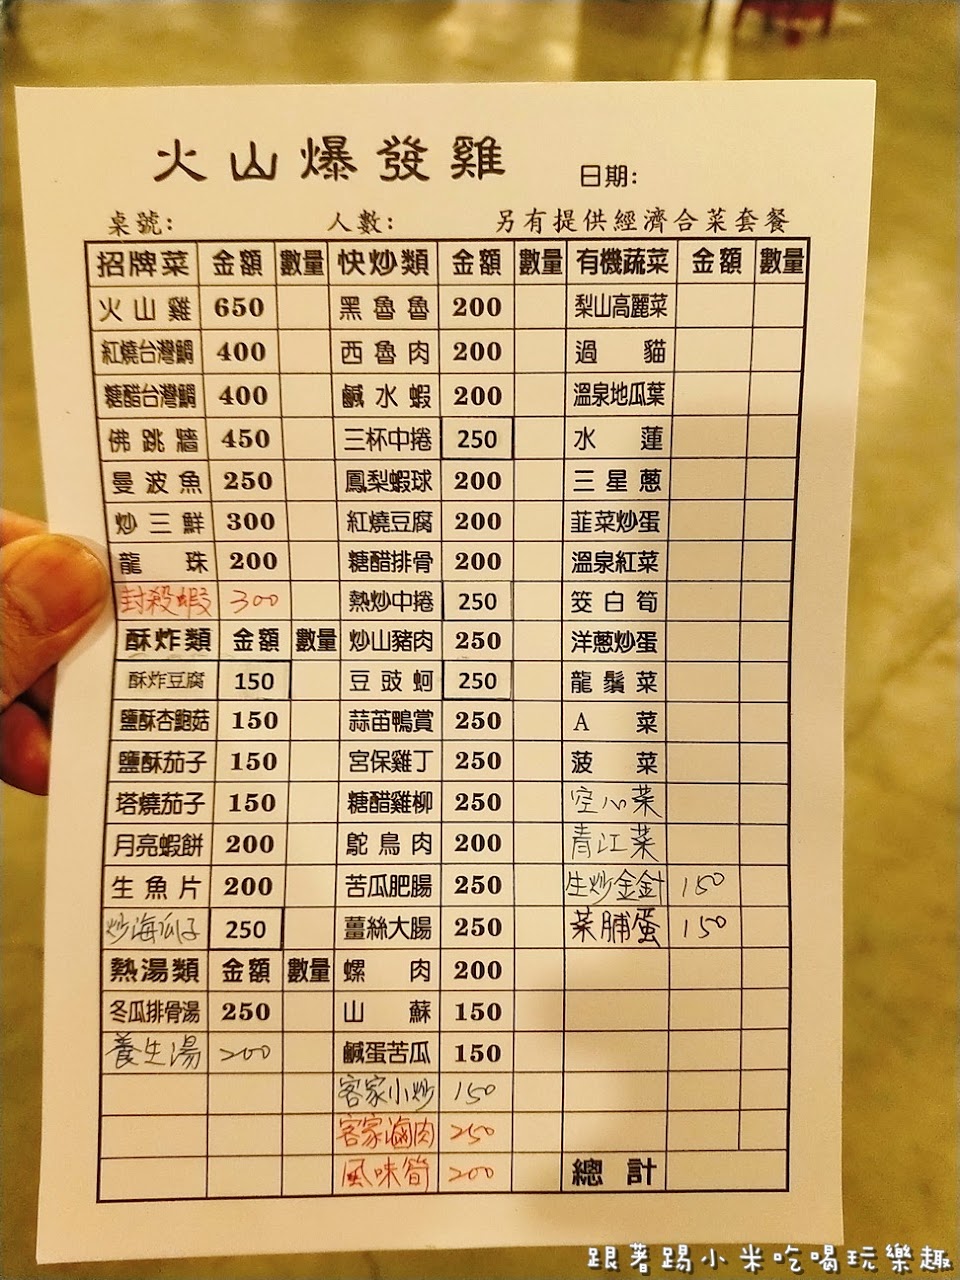 火山爆發雞
日期:
桌號: 人數: 另有提供經濟合菜套餐
招牌菜 金額 數量 快炒類 金額 數量 有機蔬菜 金額 數量
火山雞 650 黑魯魯 200 梨山高麗菜
紅燒台灣鯛 400 西魯肉 200 過貓
糖醋台灣鯛 400 鹹水蝦 200 溫泉地瓜葉
佛跳牆 450 三杯中捲 250 水蓮
曼波魚 250 鳳梨蝦球 200 三星蔥
炒三鮮 300 紅燒豆腐 200 韭菜炒蛋
龍珠 200 糖醋排骨 200 溫泉紅菜
封殺蝦 300 熱炒中捲 250 筊白筍
酥炸類 金額 數量 炒山豬肉 250 洋蔥炒蛋
酥炸豆腐 150 豆豉蚵 250 龍鬚菜
鹽酥杏鮑菇 150 蒜苗鴨賞 250 A菜
鹽酥茄子 150 宮保雞丁 250 菠菜
塔燒茄子 150 糖醋雞柳 250 空心菜
月亮蝦餅 200 鴕鳥肉 200 青江菜
生魚片 200 苦瓜肥腸 250 生炒金針 150
炒海瓜子 250 薑絲大腸 250 菜脯蛋 150
熱湯類 金額 數量 螺肉 200
冬瓜排骨湯 250 山蘇 150
養生湯 200 鹹蛋苦瓜 150
客家小炒 150
客家滷肉 250
風味筍 200 總計
跟著踢小米吃喝玩樂趣